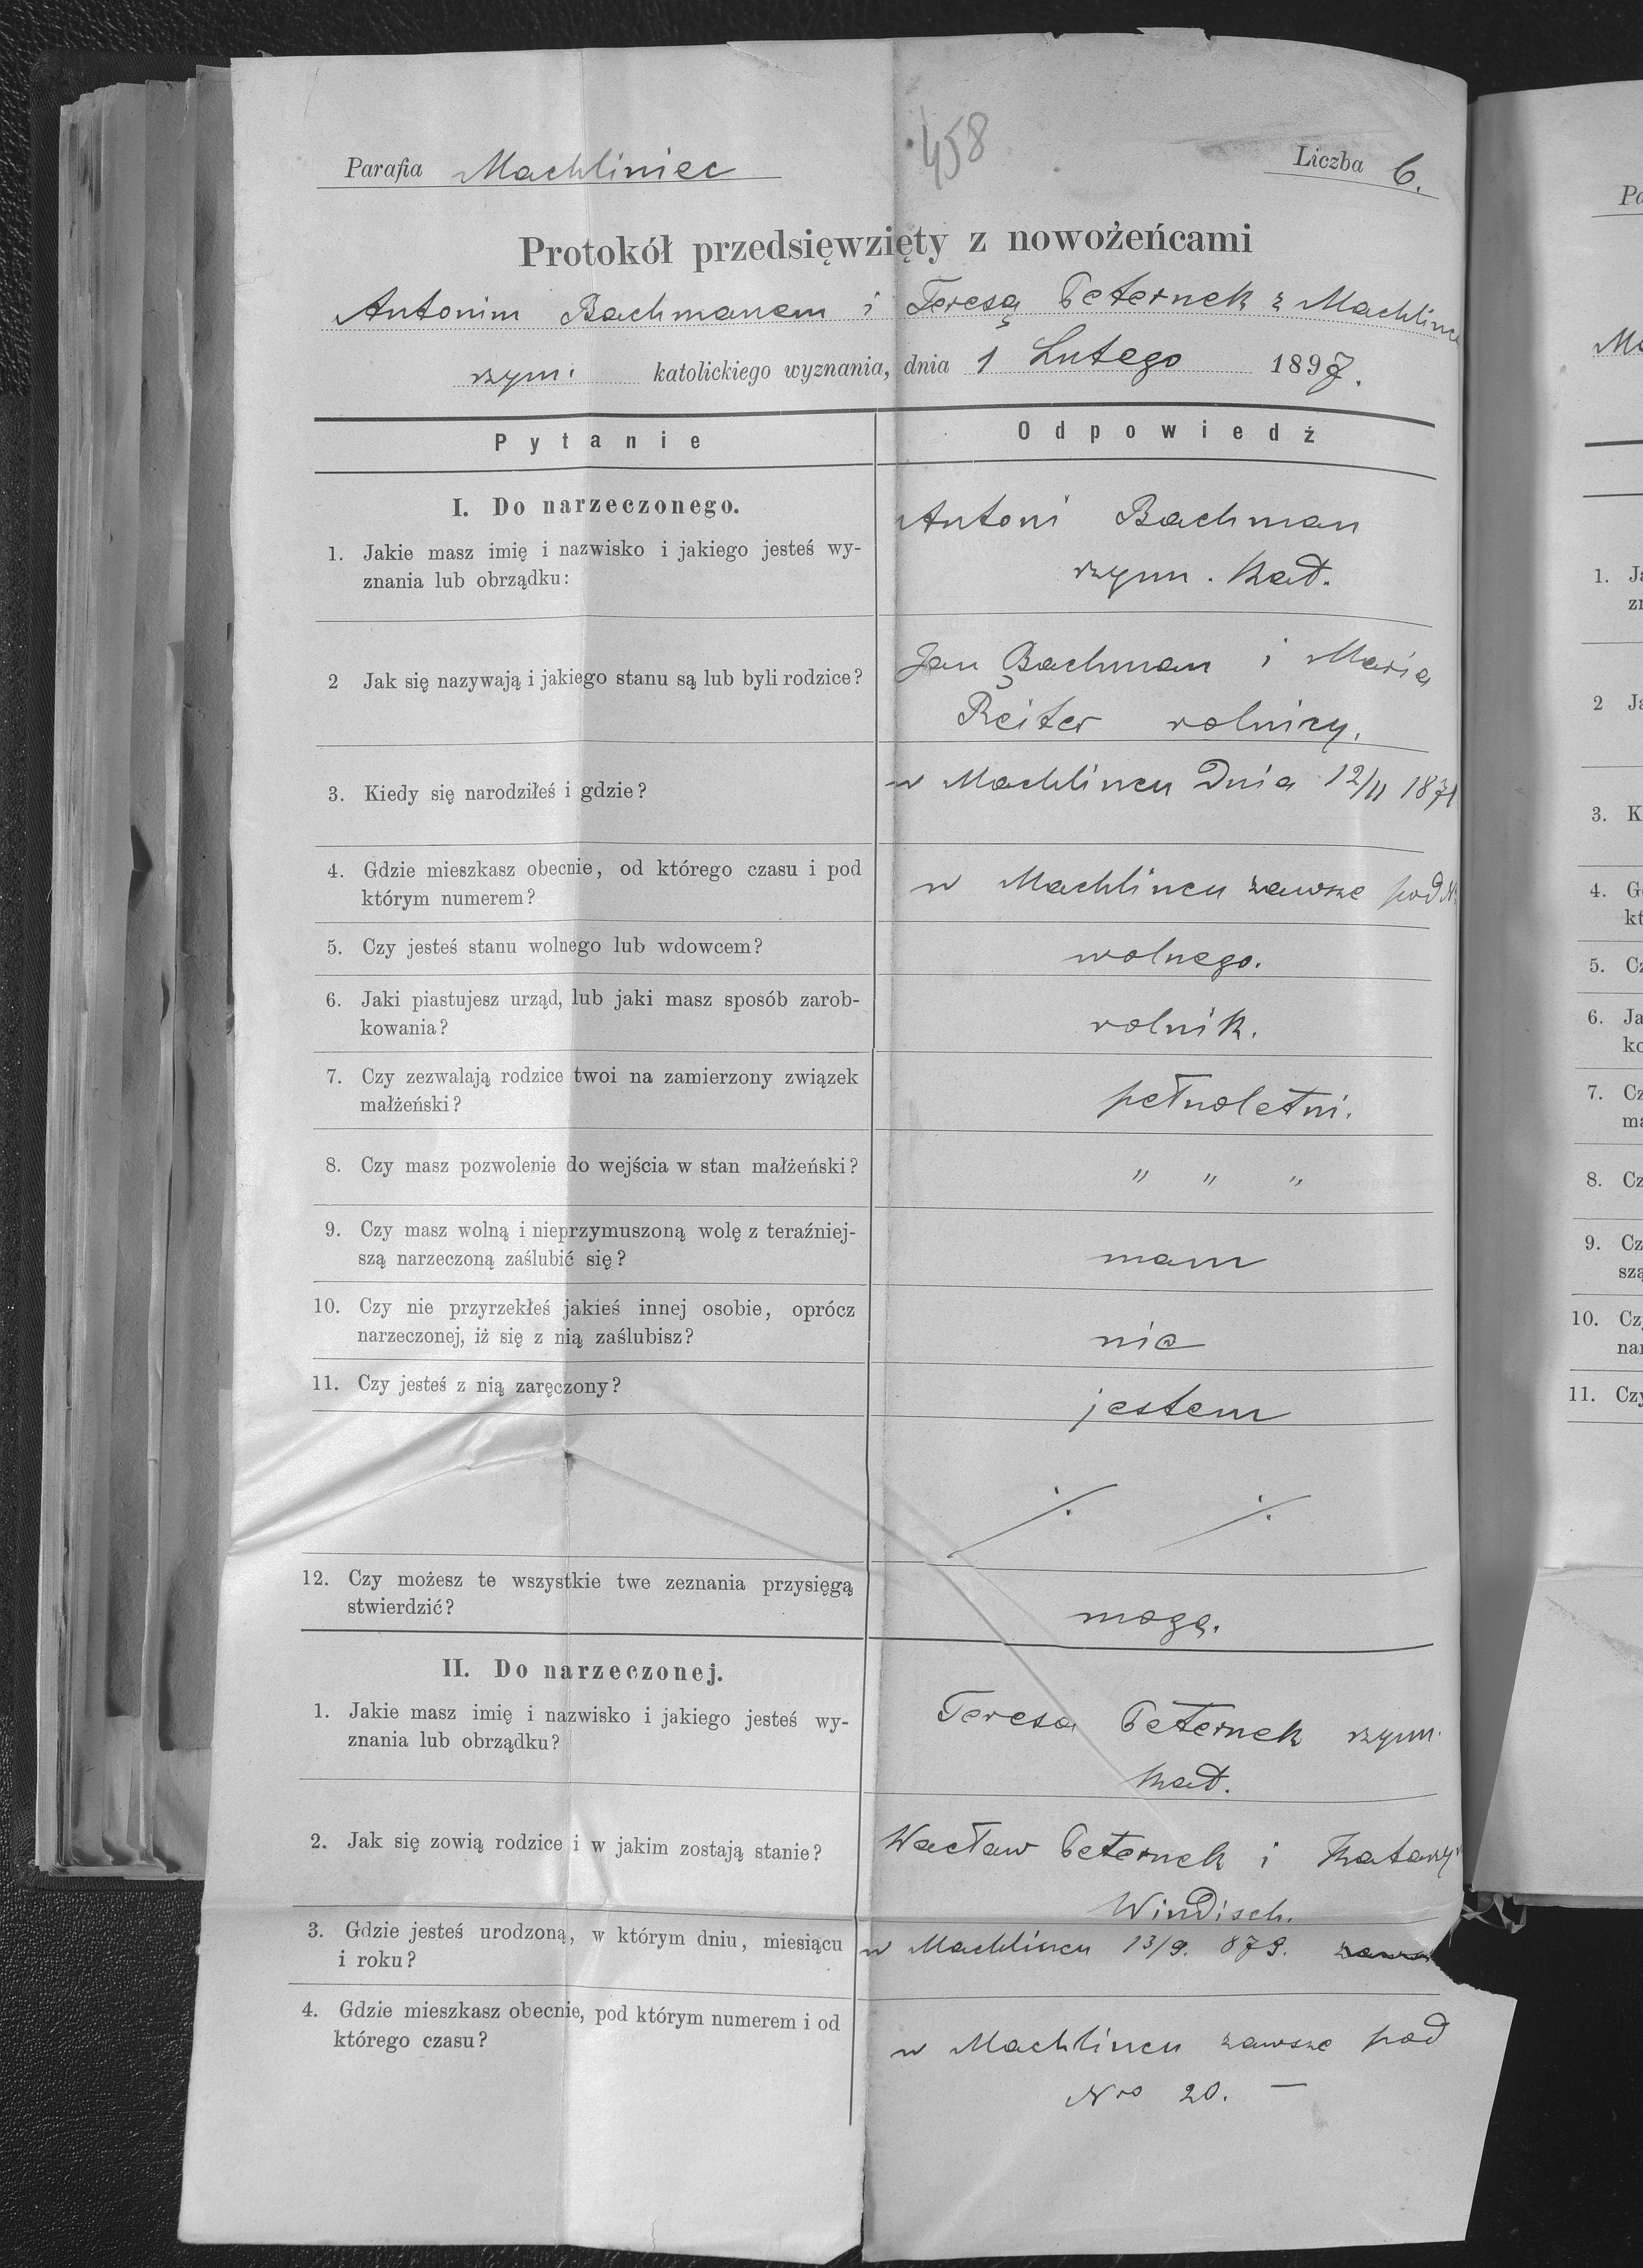 458
Parafia Machliniec
Liczba 6.
Protokół przedsięwzięty z nowożeńcami
Antonim Bachmanem i Teresą Peternek z Machlinca
rzym. katolickiego wyznania, dnia 1 Lutego 1897.
Pytanie
Odpowiedź
I. Do narzeczonego.
1. Jakie masz imię i nazwisko i jakiego jesteś wy-
znania lub obrządku:
Antoni Bachman
rzym. kat.
2 Jak się nazywają i jakiego stanu są lub byli rodzice?
Jan Bachman i Maria
Reiter rolnicy.
3. Kiedy się narodziłeś i gdzie?
w Machlincu Dnia 12/11 1871
4. Gdzie mieszkasz obecnie, od którego czasu i pod
którym numerem?
w Machlincu zawsze pod N
5. Czy jesteś stanu wolnego lub wdowcem?
wolnego.
6. Jaki piastujesz urząd, lub jaki masz sposób zarob-
kowania?
rolnik.
7. Czy zezwalają rodzice twoi na zamierzony związek
małżeński?
pełnoletni.
8. Czy masz pozwolenie do wejścia w stan małżeński?
" " "
9. Czy masz wolną i nieprzymuszoną wolę z teraźniej-
szą narzeczoną zaślubić się?
mam
10. Czy nie przyrzekłeś jakieś innej osobie, oprócz
narzeczonej, iż się z nią zaślubisz?
nie
11. Czy jesteś z nią zaręczony?
jestem
·/. ·/.
12. Czy możesz te wszystkie twe zeznania przysięgą
stwierdzić?
mogę.
II. Do narzeczonej.
1. Jakie masz imię i nazwisko i jakiego jesteś wy-
znania lub obrządku?
Teresa Peternek rzym.
kat.
2. Jak się zowią rodzice i w jakim zostają stanie?
Wacław Peternek i Katarzy
Windisch.
3. Gdzie jesteś urodzoną, w którym dniu, miesiącu
i roku?
w Machlincu 13/9. 879.
4. Gdzie mieszkasz obecnie, pod którym numerem i od
którego czasu?
w Machlincu zawsze pod
Nro 20. —
1. Ja
2 Ja
3. K
4. G
kt
5. Cz
6. Ja
ko
7. Cz
ma
8. Cz
9. Cz
szą
10. Cz
nar
11. Czy